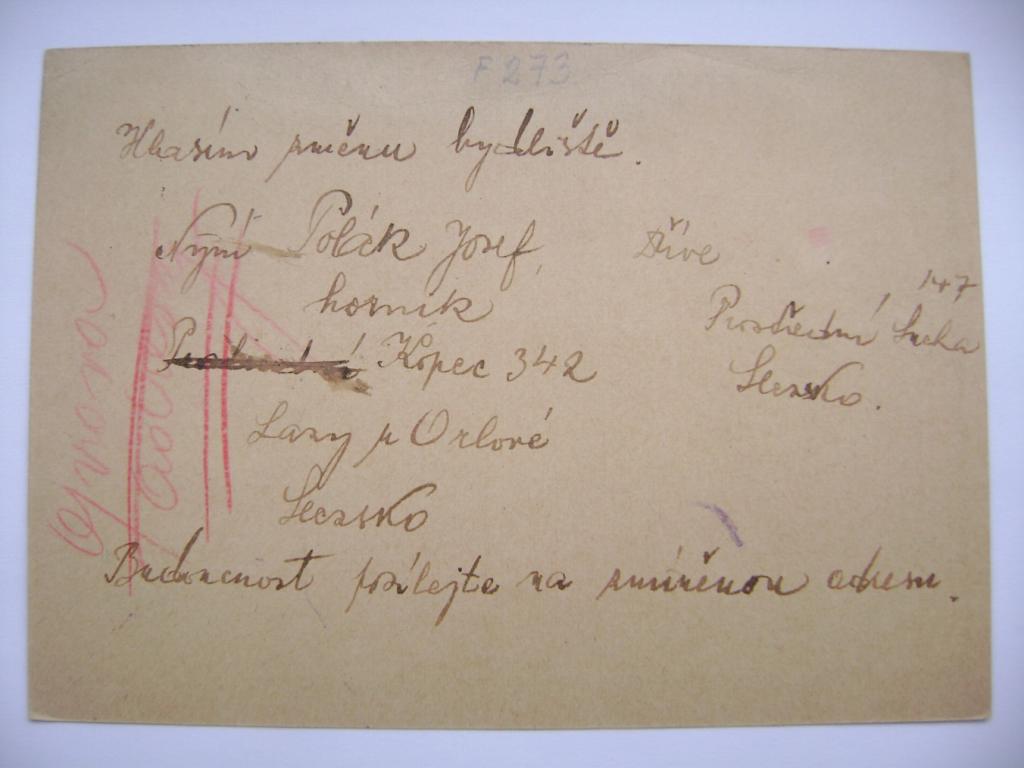 F 273
Hlásím změnu bydliště.
Nyní Polák Josef, Dříve
horník
147
Prostřední Suchá
Kopec 342
Slezsko.
Lazy u Orlové
Slezsko
Budoucnost posílejte na změněnou adresu.
oprava